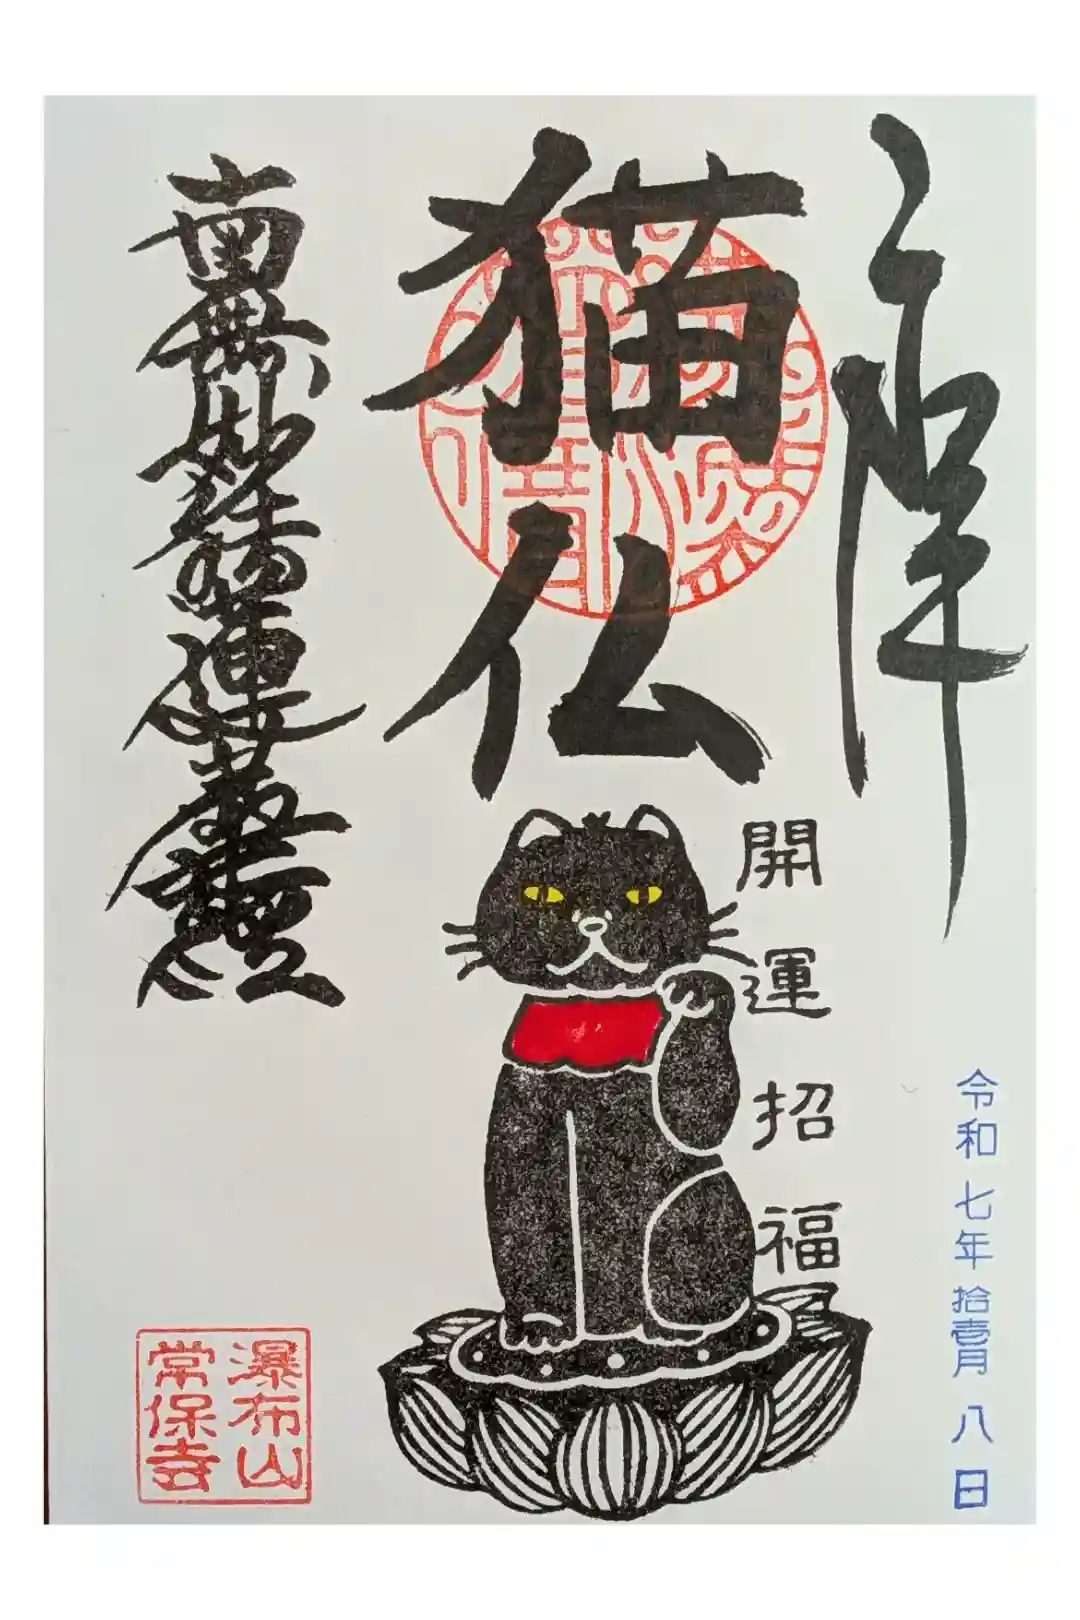 奉拝
令和七年拾壹月八日
猫仏
開運招福
南無
瀑布山
常保寺